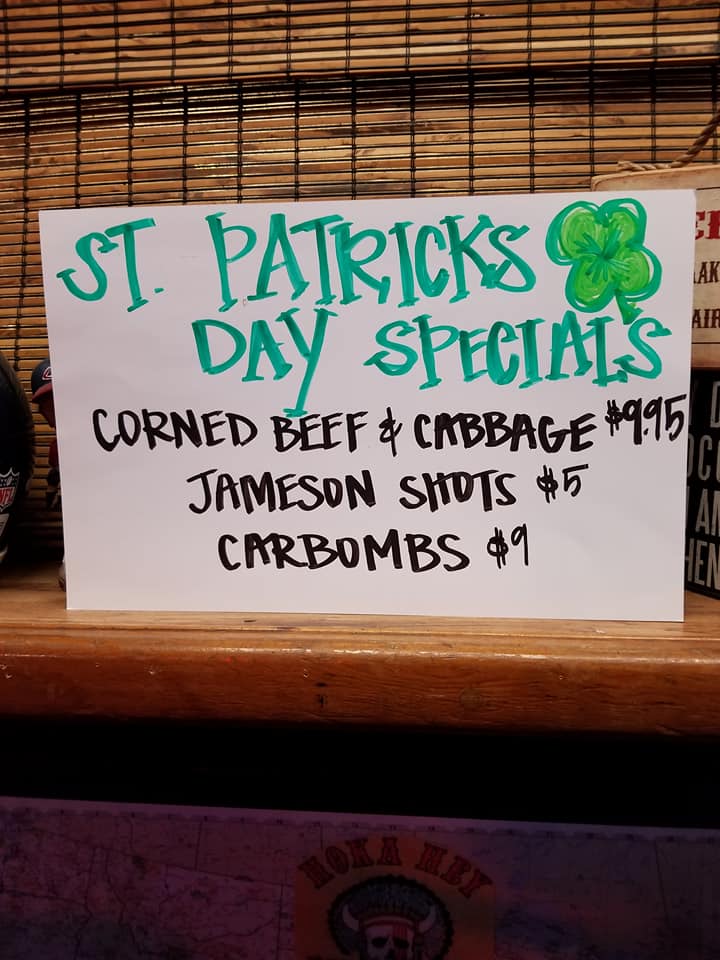 ST. PATRICKS
DAY SPECIALS
CORNED BEEF & CABBAGE $9.95
JAMESON SHOTS $5
CARBOMBS $9
NFL
HOKA HEY